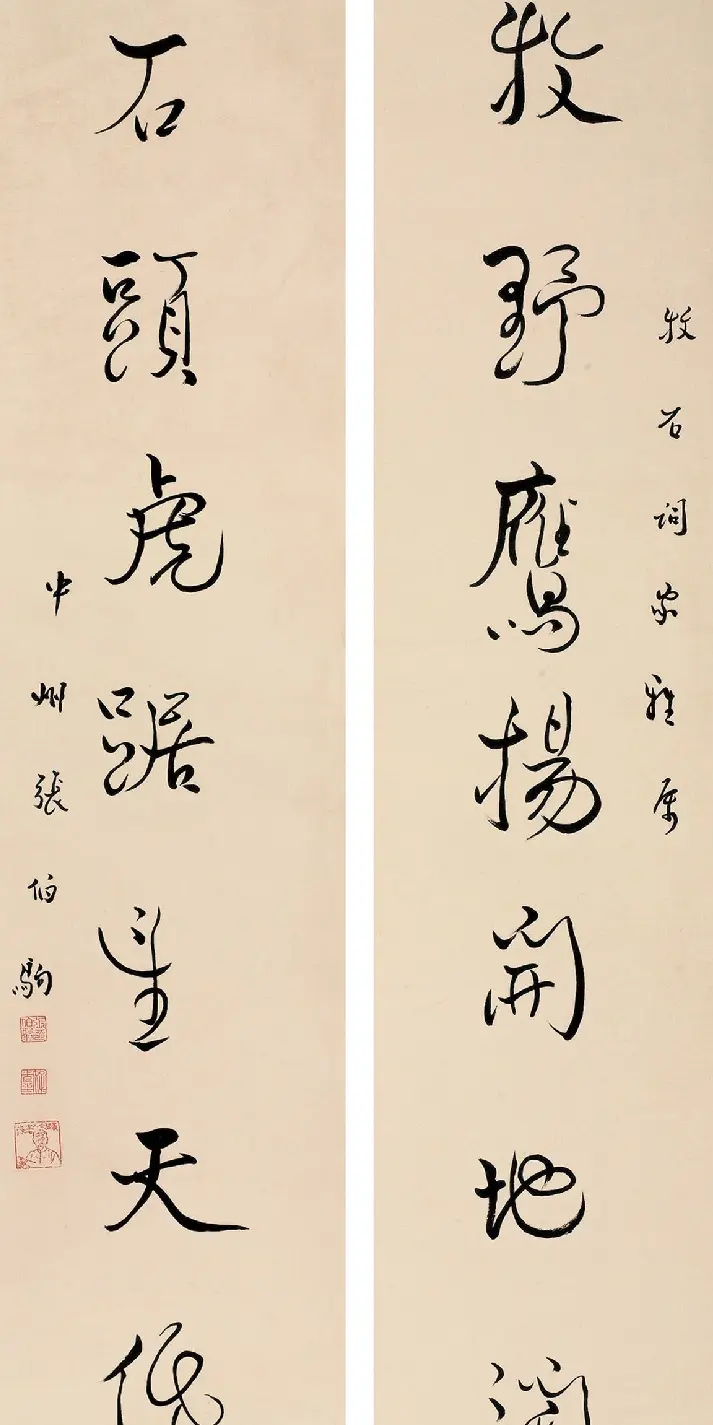 牧石詞家雅屬
牧野鷹揚開地
石頭虎踞望天低
中州張伯駒